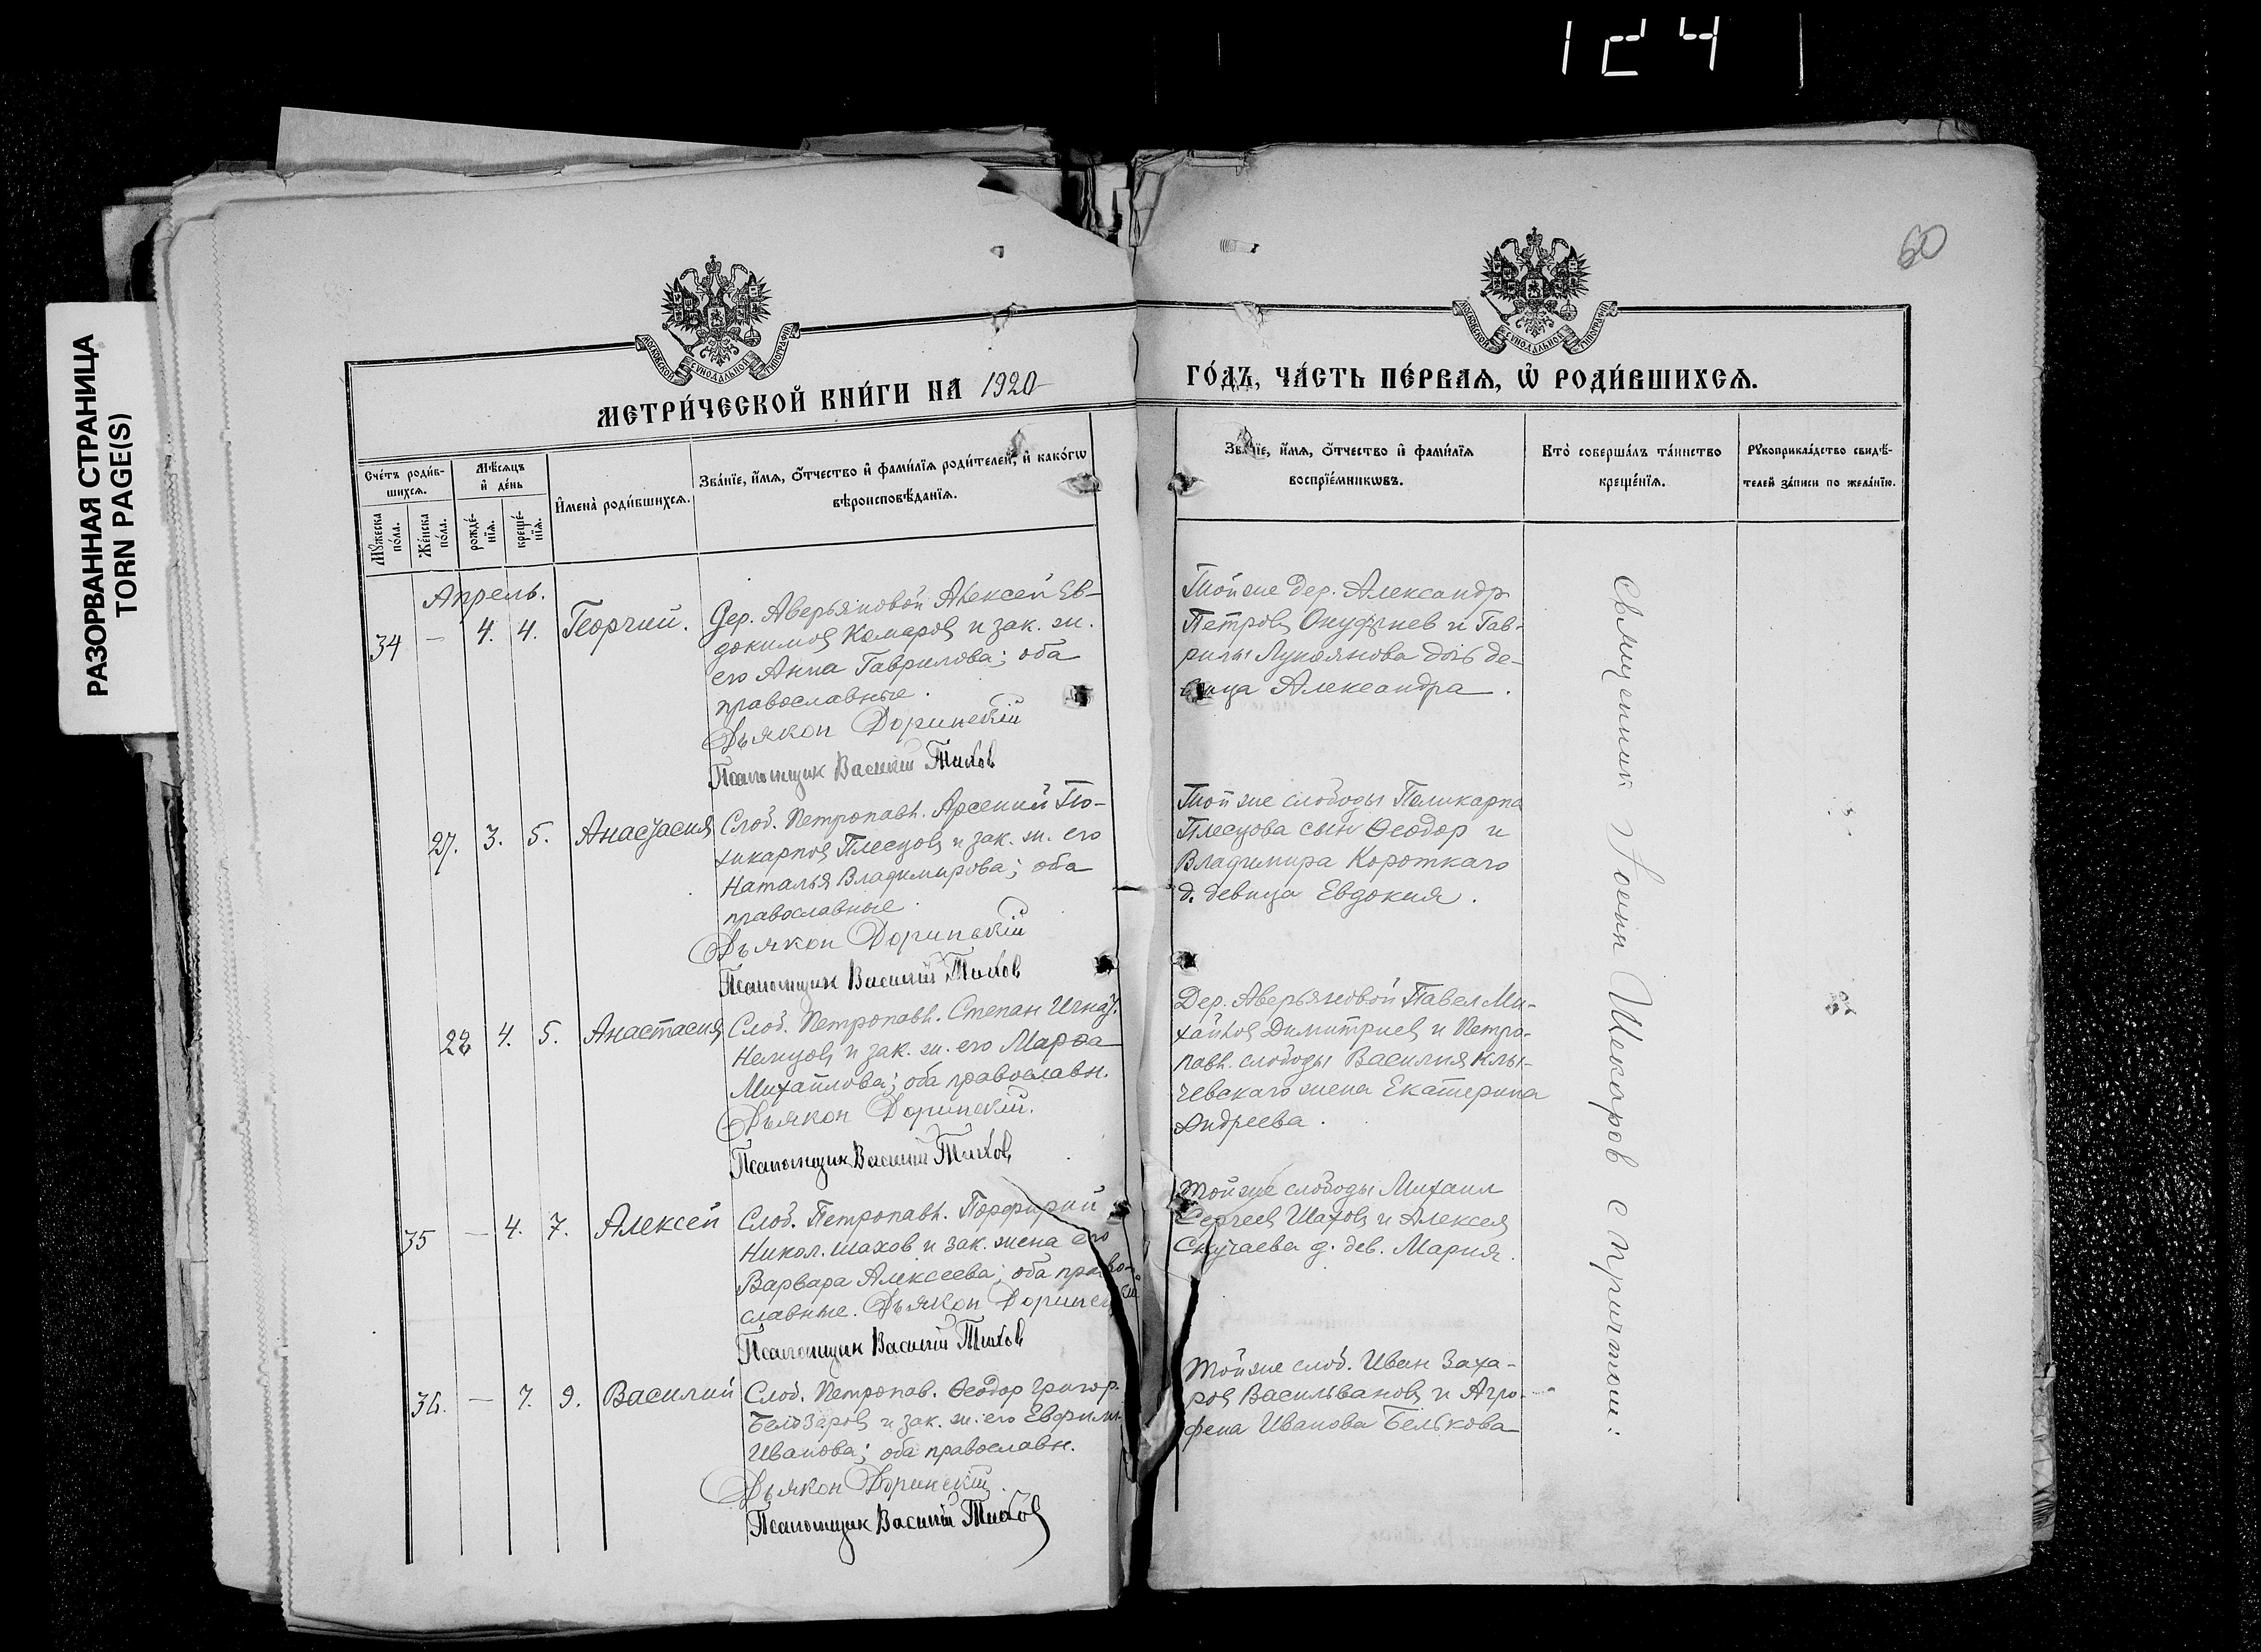 124
РАЗОРВАННАЯ СТРАНИЦА
TORN PAGE(S)
60
МОСКОВСКОЙ СѴНОДАЛЬНОЙ ТИПОГРАФІИ
МОСКОВСКОЙ СѴНОДАЛЬНОЙ ТИПОГРАФІИ
МЕТРИ́ЧЕСКОЙ КНИ́ГИ НА 1920
ГО́ДЪ, ЧА́СТЬ ПЕ́РВАЯ, Ѡ҆ РОДИ́ВШИХСЯ.
Сче́тъ роди́в-
шихся.
Мꙋ́жеска
по́ла.
Же́нска
по́ла.
Мѣ́сяцъ
и҆ де́нь
рожде́-
нїя.
креще́-
нїя.
И҆мена̀ роди́вшихся.
Зва́нїе, и҆́мя, ѻ҆́тчество и҆ фами́лїя роди́телей, и҆ како́гѡ
вѣроисповѣ́данїя.
Зва́нїе, и҆́мя, ѻ҆́тчество и҆ фами́лїя
воспрїе́мникѡвъ.
Кто̀ соверша́лъ та́инство
креще́нїя.
Рꙋкоприкла́дство свидѣ́-
телей за́писи по жела́нїю.
Апрель.
34 — 4. 4. Георгий.
Дер. Аверьяновой Алексей Ев-
докимов Комаров и зак. ж.
его Анна Гаврилова; оба
православные.
Дьякон Доринскій
Псаломщик Василій Тихов
Той же дер. Александр
Петров и Гав-
рилы Лукоянова дочь де-
вица Александра.
27. 3. 5. Анастасия
Слоб. Петропавл. Арсений По-
ликарпов Плесцов и зак. ж. его
Наталья Владимирова; оба
православные
Дьякон Доринскій
Псаломщик Василій Тихов
Той же слободы Поликарпа
Плесцова сын Ѳеодор и
Владимира Короткаго
д. девица Евдокия.
28 4. 5. Анастасия
Слоб. Петропавл. Степан Игнат.
Немцов и зак. ж. его Марѳа
Михайлова; оба православн.
Дьякон Доринскій.
Псаломщик Василій Тихов
Дер. Аверьяновой Павел Ми-
хайлов Димитриев и Петро-
павл. слободы Василия Клы-
чевскаго жена Екатерина
Андреева.
35 — 4. 7. Алексей
Слоб. Петропавл. Порфирий
Никол. Шахов и зак. жена его
Варвара Алексеева; оба право-
славные. Дьякон Доринскій
Псаломщик Василій Тихов
Той же слободы Михаил
Сергеев Шахов и Алексея
д. дев. Мария.
36. — 7. 9. Василий
Слоб. Петропав. Ѳеодор Григор.
Белозеров и зак. ж. его Евфим.
Иванова; оба православн.
Дьякон Доринскій
Псаломщик Василій Тихов
Той же слоб. Иван Заха-
ров Васильванов и Агро-
фена Иванова Белькова
Священник Іоанн Шекаров с причтом.